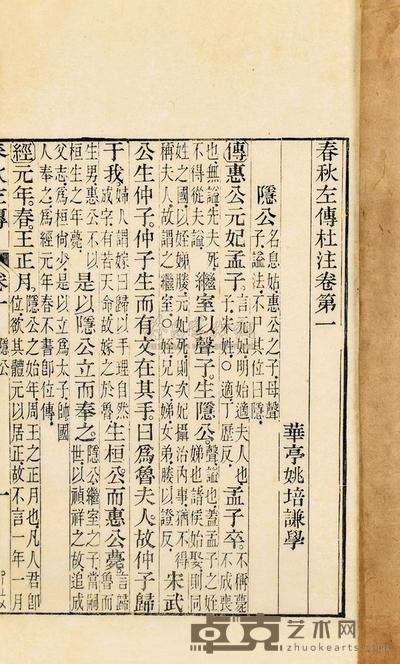 春秋左傳杜注卷第一
華亭姚培謙學
隱公名息姑惠公之子母聲子謚法不尸其位曰隱
傳惠公元妃孟子言元妃明始適夫人也子宋姓○適丁歷反孟子卒不稱薨不成喪
也無謚先夫死不得從夫謚繼室以聲子生隱公聲謚也蓋孟子之姪娣也諸侯始娶則同
姓之國以姪娣媵元妃死則次妃攝治內事猶不得稱夫人故謂之繼室○姪兄女娣女弟媵以證反宋武
公生仲子仲子生而有文在其手曰爲魯夫人故仲子歸
于我婦人謂嫁曰歸以手理自然成字有若天命故嫁之於魯生桓公而惠公薨言歸
生男惠公不以桓生之年薨是以隱公立而奉之隱公繼室之子當嗣世以禎祥之故追成
父志爲桓尚少是以立爲太子帥國人奉之爲經元年春不書卽位傳
經元年春王正月隱公之始年周王之正月也凡人君卽位欲其體元以居正故不言一年一月
春秋左傳 卷一 隱公 一
卓克艺术网
www.zhuokearts.com